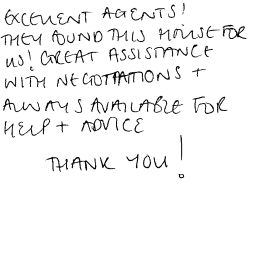 EXCELLENT AGENTS!
THEY FOUND THIS HOUSE FOR
US! GREAT ASSISTANCE
WITH NEGOTIATIONS +
ALWAYS AVAILABLE FOR
HELP + ADVICE
THANK YOU!